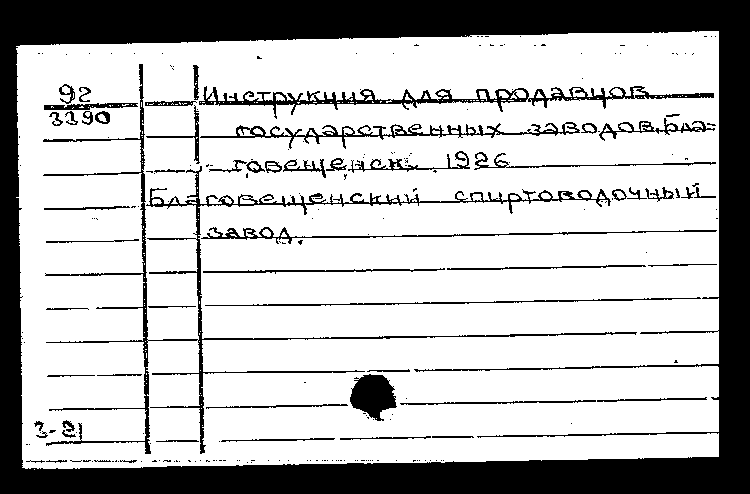 92 Инструкция для продавцов
3390 государственных заводов. Бла=
говещенск. 1926
Благовещенский спиртоводочный
завод.
3-21